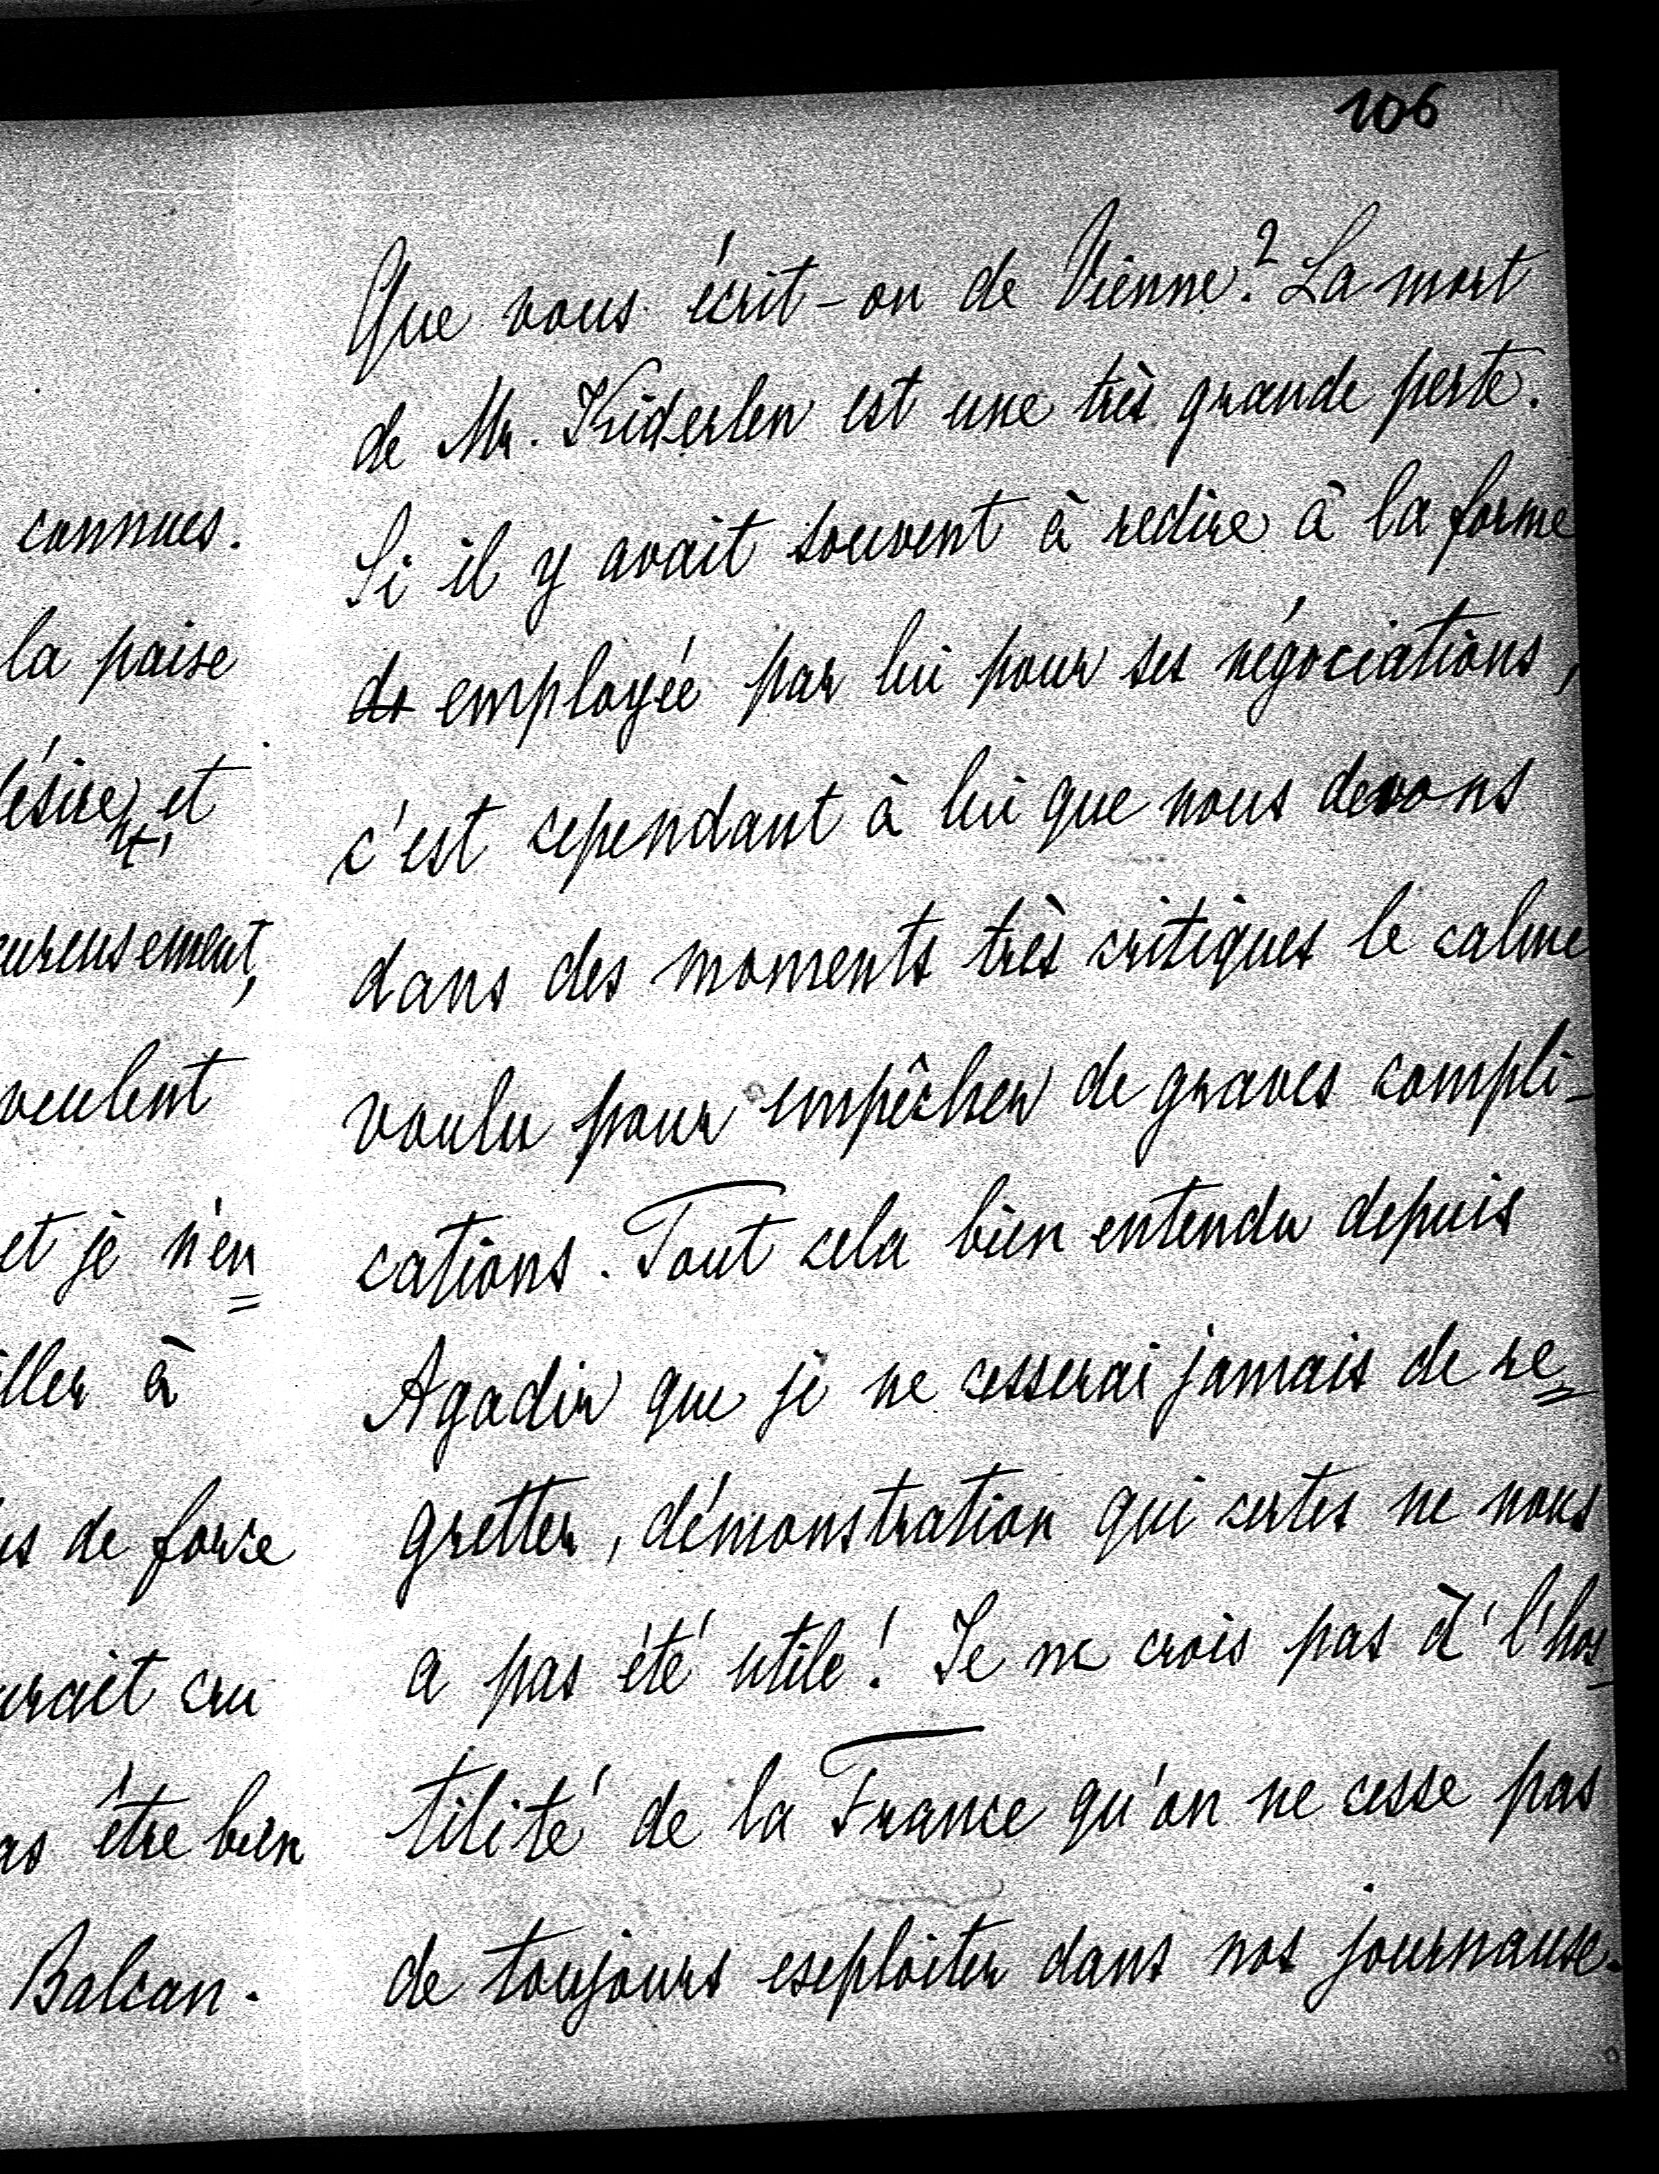 106
connues.
la paix
désire, et
n'
eureusement,
veulent
et je n'en
iller à
is de force
urait cru
as être bien
Balcan.
Que vous écrit-on de Vienne? La mort
de Mr. Kiderlen est une très grande perte.
Si il y avait souvent à redire à la forme
de employée par lui pour ses négociations,
c'est cependant à lui que nous devons
dans des moments très critiques le calme
voulu pour empêcher de graves compli-
cations. Tout cela bien entendu depuis
Agadir que je ne cesserai jamais de re=
gretter, démonstration qui certes ne nous
a pas été utile! Je ne crois pas à l'hos-
tilité de la France qu'on ne cesse pas
de toujours exploiter dans nos journaux.